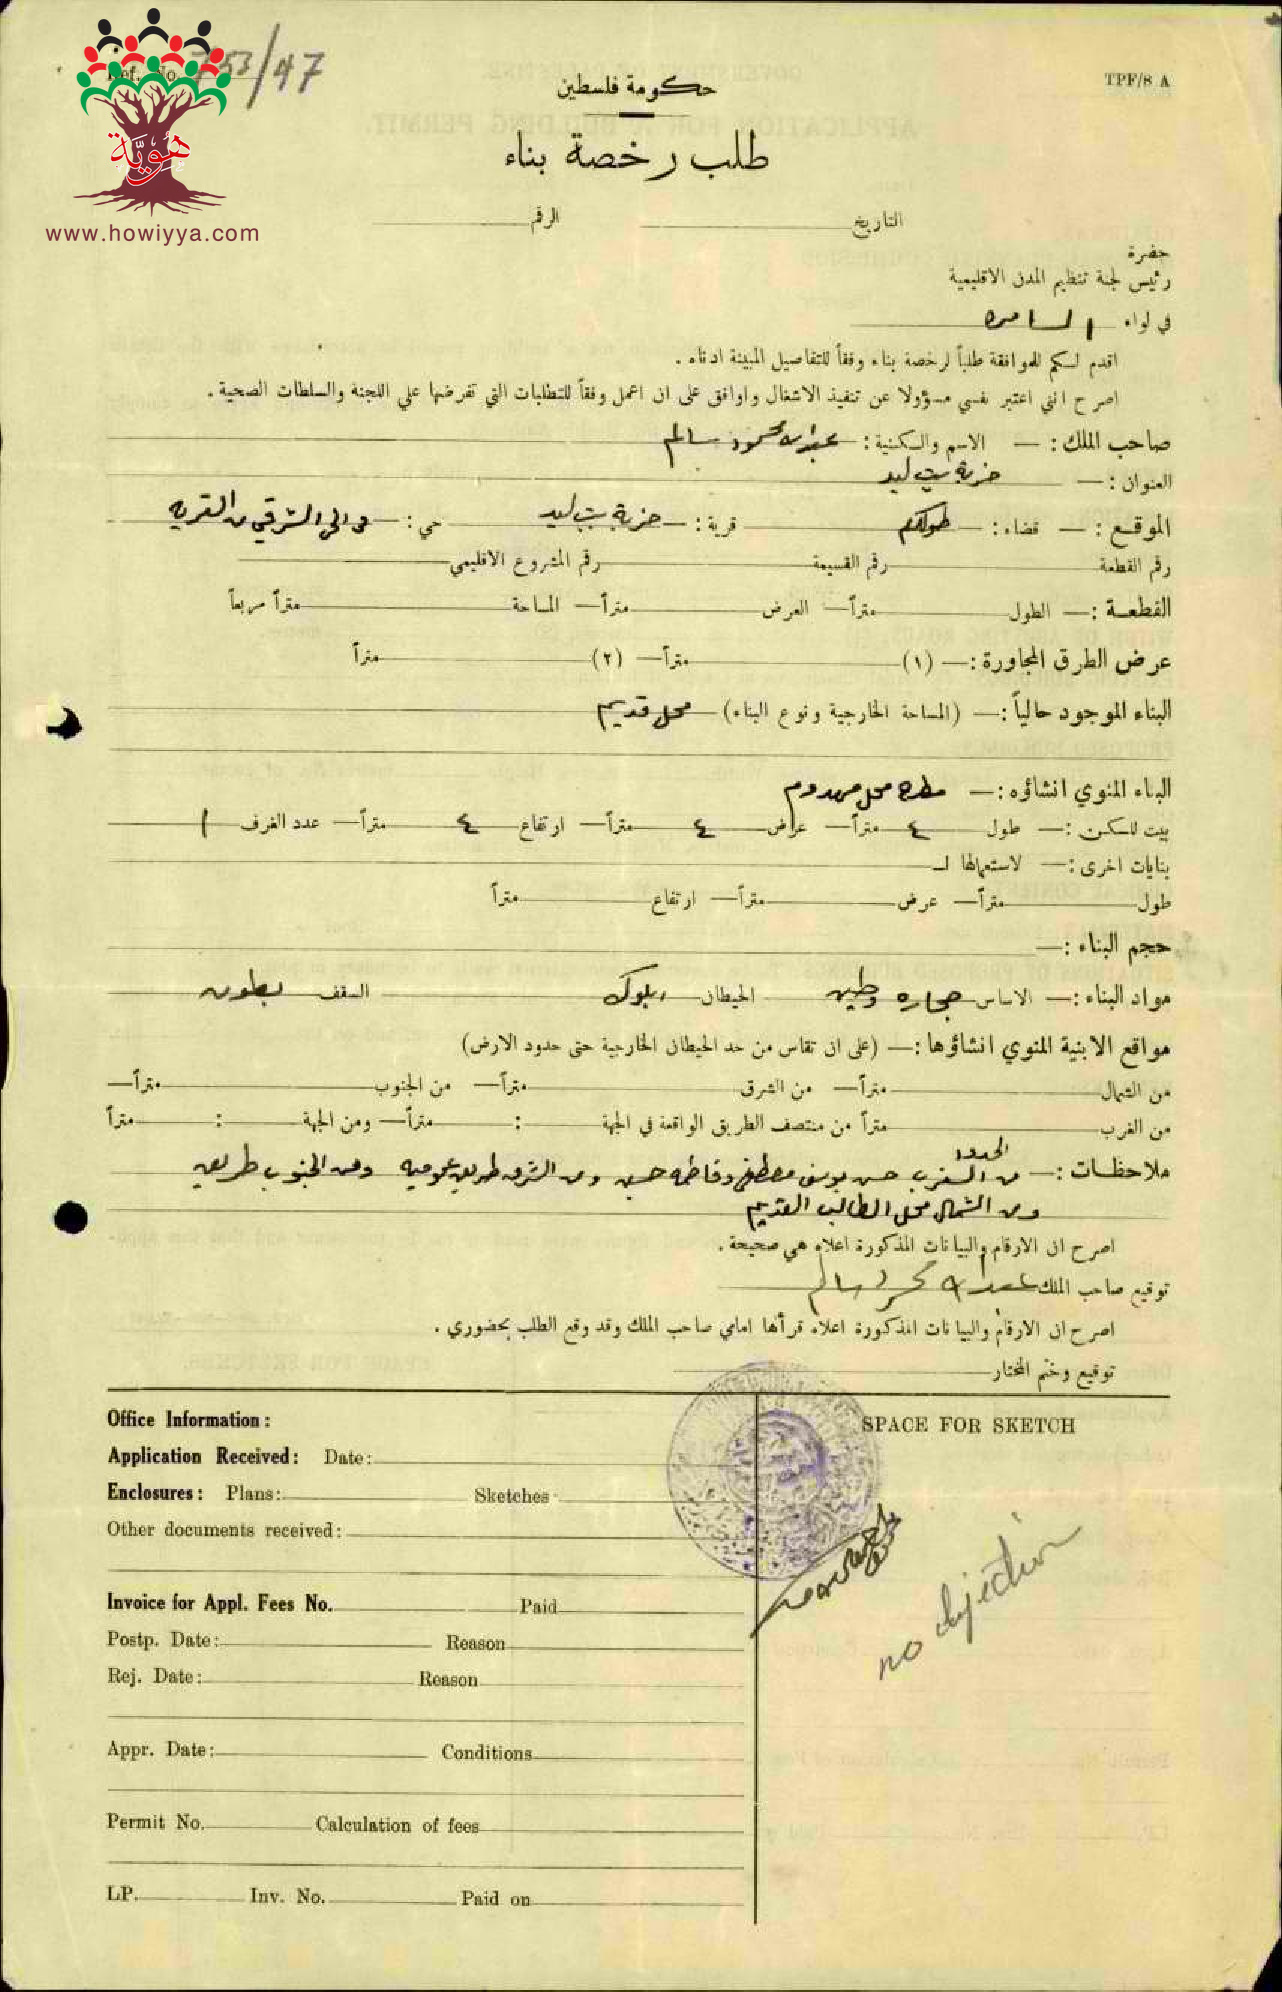 Ref. No. 753/47
TPF/8 A
هوية
www.howiyya.com
حكومة فلسطين
طلب رخصة بناء
التاريخ الرقم
حضرة
رئيس لجنة تنظيم المدن الاقليمية
في لواء السامره
اقدم لكم للموافقة طلباً لرخصة بناء وفقاً للتفاصيل المبينة ادناه .
اصرح انني اعتبر نفسي مسؤولا عن تنفيذ الاشغال واوافق على ان اعمل وفقاً للمتطلبات التي تفرضها علي اللجنة والسلطات الصحية .
صاحب الملك :— الاسم والكنية :— عبدالله محمود سالم
العنوان :— خربة بيت ليد
الموقع :— قضاء : طولكم قرية :— خربة بيت ليد حي :— حوالي الشرقي من القريه
رقم القطعة رقم القسيمة رقم المشروع الاقليمي
القطعة :— الطول متراً— العرض متراً— المساحة متراً مربعاً
عرض الطرق المجاورة :— (١) متراً— (٢) متراً
البناء الموجود حالياً :— (المساحة الخارجية ونوع البناء) — محل قديم
البناء المنوي انشاؤه :— مطرح محل مهدوم
بيت للسكن :— طول ٤ متراً— عرض ٤ متراً— ارتفاع ٤ متراً— عدد الغرف ١
بنايات اخرى :— لاستعمالها لـ
طول متراً— عرض متراً— ارتفاع متراً
حجم البناء :—
مواد البناء :— الاساس حجاره وطين الحيطان بلوك السقف بطون
مواقع الابنية المنوي انشاؤها :— (على ان تقاس من حد الحيطان الخارجية حتى حدود الارض)
من الشمال متراً— من الشرق متراً— من الجنوب متراً—
من الغرب متراً من منتصف الطريق الواقعة في الجهة : متراً— ومن الجهة : متراً
الحدود
ملاحظات :— من الغرب حسن يوسف مصطفى وفاطمه حسن ومن الشرق طريق عموميه ومن الجنوب طريق
ومن الشمال محل الطالب القديم
اصرح ان الارقام والبيانات المذكورة اعلاه هي صحيحة .
توقيع صاحب الملك عبدالله محمود سالم
اصرح ان الارقام والبيانات المذكورة اعلاه قرأها امامي صاحب الملك وقد وقع الطلب بحضوري .
توقيع وختم المختار
Office Information :
Application Received : Date :
Enclosures : Plans : Sketches
Other documents received :
Invoice for Appl. Fees No. Paid
Postp. Date : Reason
Rej. Date : Reason
Appr. Date : Conditions
Permit No. Calculation of fees
LP. Inv. No. Paid on
SPACE FOR SKETCH
no objection